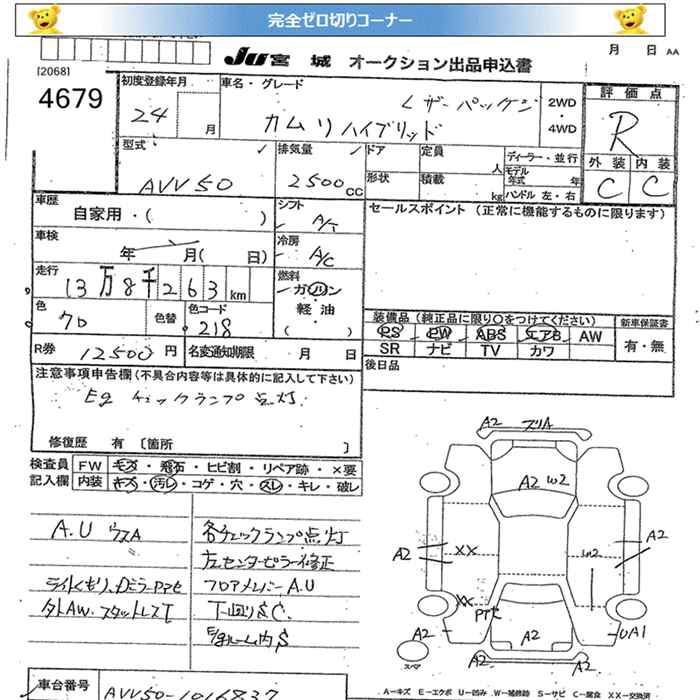 完全ゼロ切りコーナー
月 日 AA
JU 宮城 オークション出品申込書
[2068]
4679
初度登録年月
24 月
車名・グレード
レザーパッケジ
カムリハイブリッド
2WD
・
4WD
評価点
R
外装 内装
C C
型式
AVV50
排気量
2500 CC
ドア
定員
人
形状
積載
kg
ディーラー・並行
モデル
年式 年
ハンドル 左・右
車歴
自家用・( )
シフト
A/T
セールスポイント (正常に機能するものに限ります)
車検
年 月( 日)
冷房
A/C
走行
13万8千263 km
燃料
ガソリン
・
軽油
( )
色
色替
色コード
218
装備品(純正品に限り〇をつけてください)
新車保証書
PS PW ABS エアB AW
SR ナビ TV カワ
有・無
R券 12500円
名変通知期限 月 日
後日品
注意事項申告欄(不具合内容等は具体的に記入して下さい)
Eg チェックランプ点灯
修復歴 有 〔箇所 〕
検査員
記入欄
FW キズ・飛石・ヒビ割・リペア跡・×要
内装 キズ・汚レ・コゲ・穴・スレ・キレ・破レ
A.U ウスA
各チェックランプ点灯
左センターピラー修正
ライトくもり、Dミラーアセ
フロアメンバーA.U
外AW. スタットレスT
下回りS C.
Egルーム内S
車台番号
AVV50-1016837
A2 ズリA
A2 W2
A2
A2 XX
W2
A2
XX
PTセ
A2
A2
UA1
A2
A2
スペア
A-キズ E-エクボ U-凹み W-補修跡 S-サビ C-腐食 XX-交換済